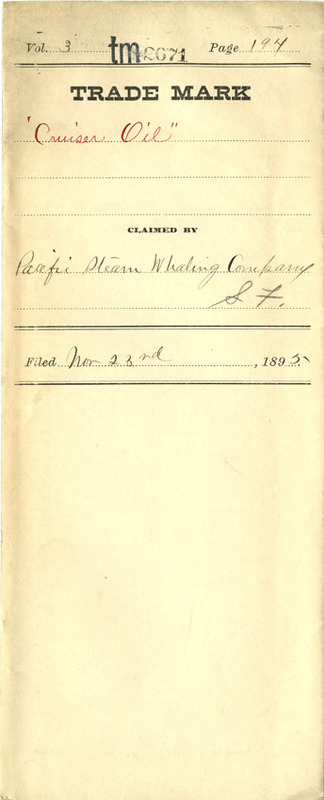 Vol. 3 tm2671 Page 194
TRADE MARK
"Cruiser Oil"
CLAIMED BY
Pacific Steam Whaling Company
S F.
Filed Nov 23rd, 1895.